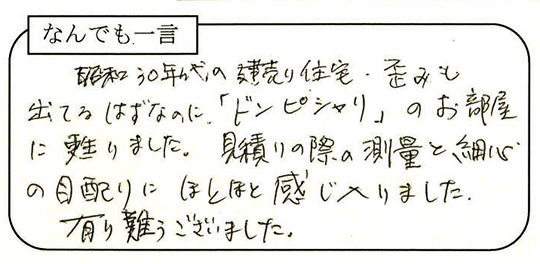 なんでも一言
昭和30年代の建売り住宅・歪みも
出てるはずなのに、「ドンピシャリ」のお部屋
に甦りました。見積りの際の測量と細心
の目配りにほとほと感じ入りました。
有り難うございました。